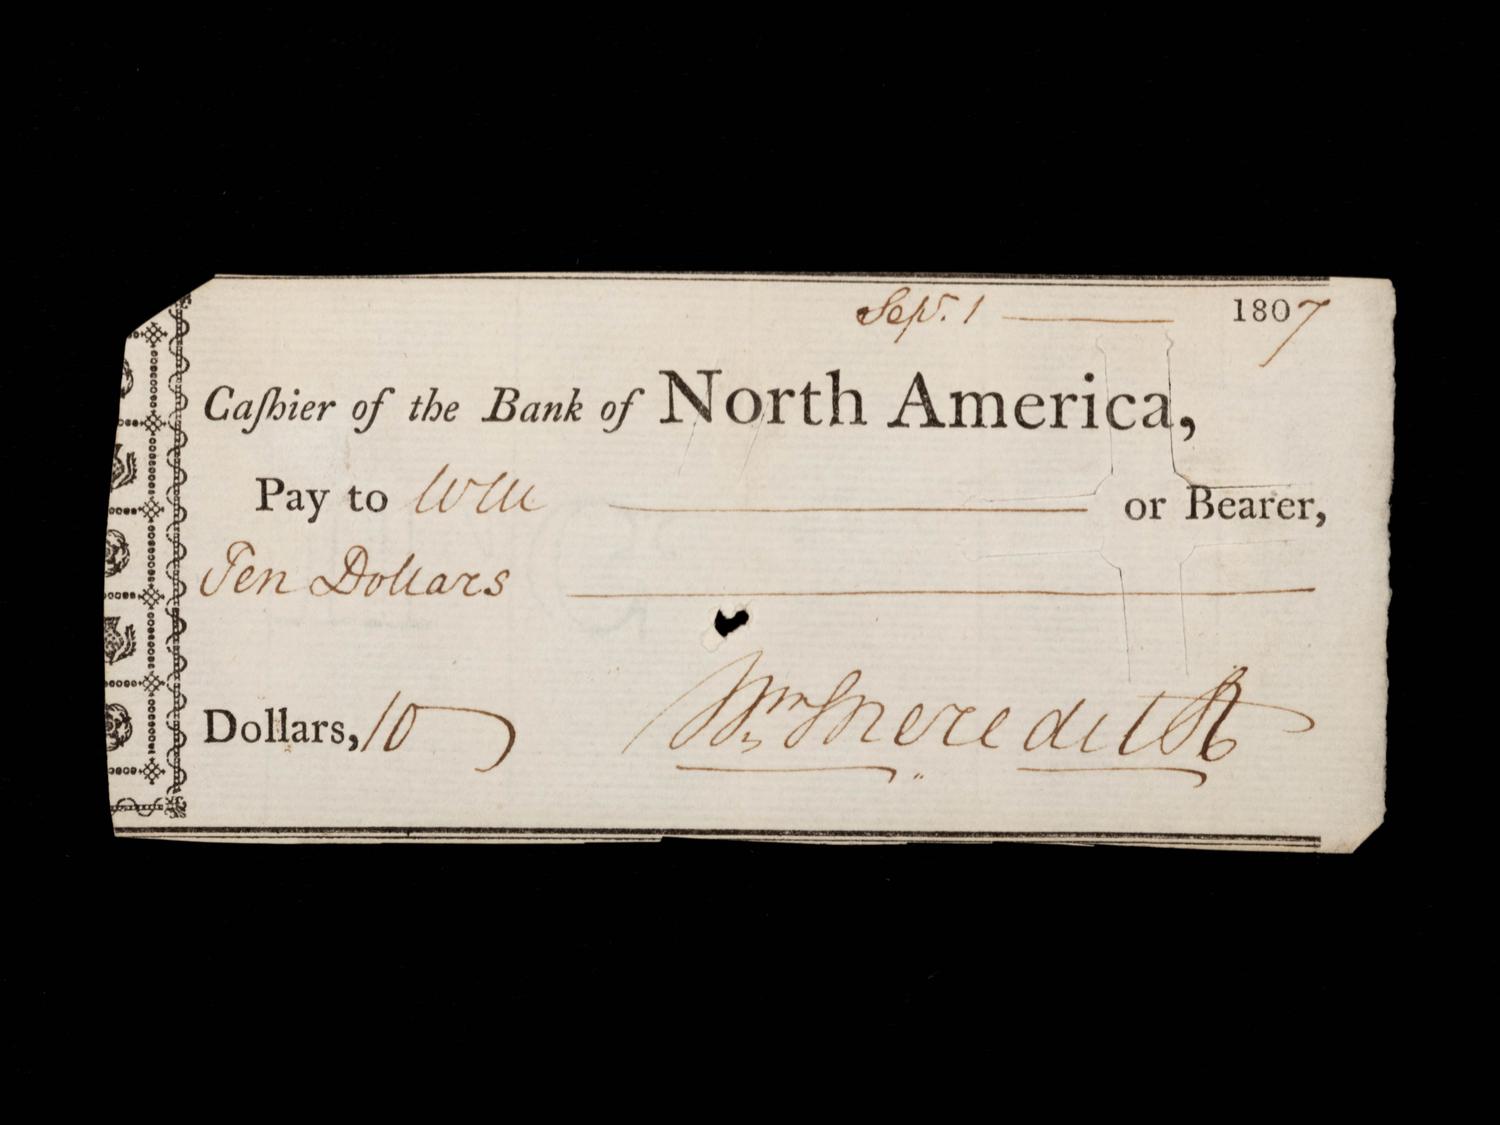 Sepr. 1 1807
Caſhier of the Bank of North America,
Pay to or Bearer,
Ten Dollars
Dollars, 10 Wm. Meredith